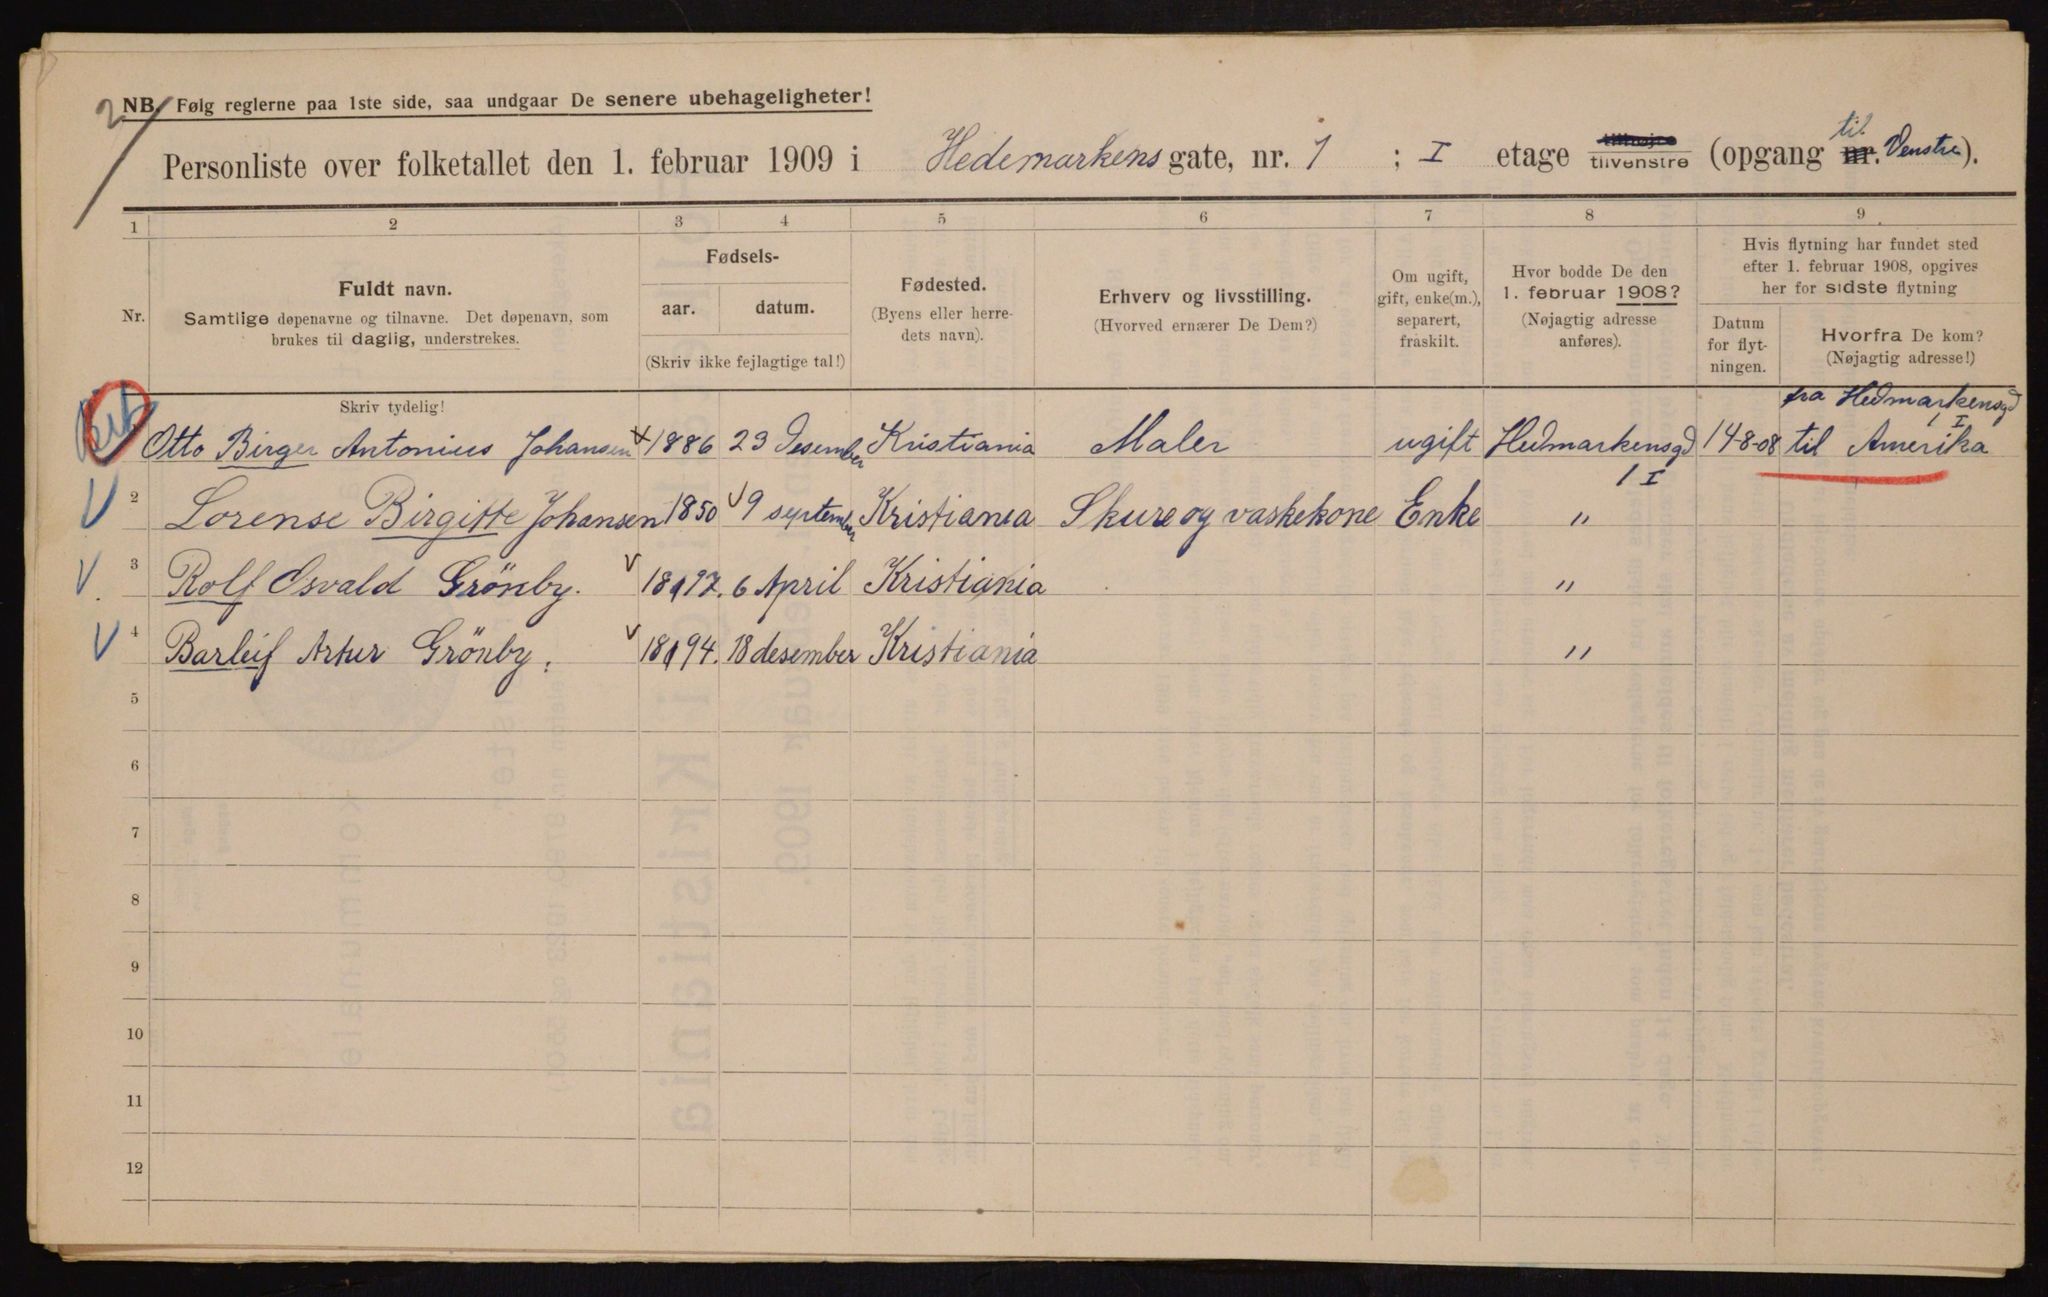 NB. Følg reglerne paa 1ste side, saa undgaar De senere ubehageligheter!
2
Personliste over folketallet den 1. februar 1909 i Hedemarkens gate, nr. 1 ; I etage tilhøire tilvenstre (opgang nr. til Venstre).
1 2 3 4 5 6 7 8 9
Nr.
Fuldt navn.
Samtlige døpenavne og tilnavne. Det døpenavn, som
brukes til daglig, understrekes.
Skriv tydelig!
Fødsels-
aar. datum.
(Skriv ikke fejlagtige tal!)
Fødested.
(Byens eller herre-
dets navn).
Erhverv og livsstilling.
(Hvorved ernærer De Dem?)
Om ugift,
gift, enke(m.),
separert,
fraskilt.
Hvor bodde De den
1. februar 1908?
(Nøjagtig adresse
anføres).
Hvis flytning har fundet sted
efter 1. februar 1908, opgives
her for sidste flytning
Datum
for flyt-
ningen.
Hvorfra De kom?
(Nøjagtig adresse!)
fra Hedmarkensgd
1 I
Otto Birger Antonius Johansen 1886 23 Desember Kristiania Maler ugift Hedmarkensgd 14-8-08 til Amerika
1 I
2 Lorense Birgitte Johansen 1850 9 september Kristiania Skure og vaskekone Enke "
3 Rolf Osvald Grönby. 1897. 6 April Kristiania "
4 Barleif Artur Grönby. 1894. 18 desember Kristiania "
5
6
7
8
9
10
11
12